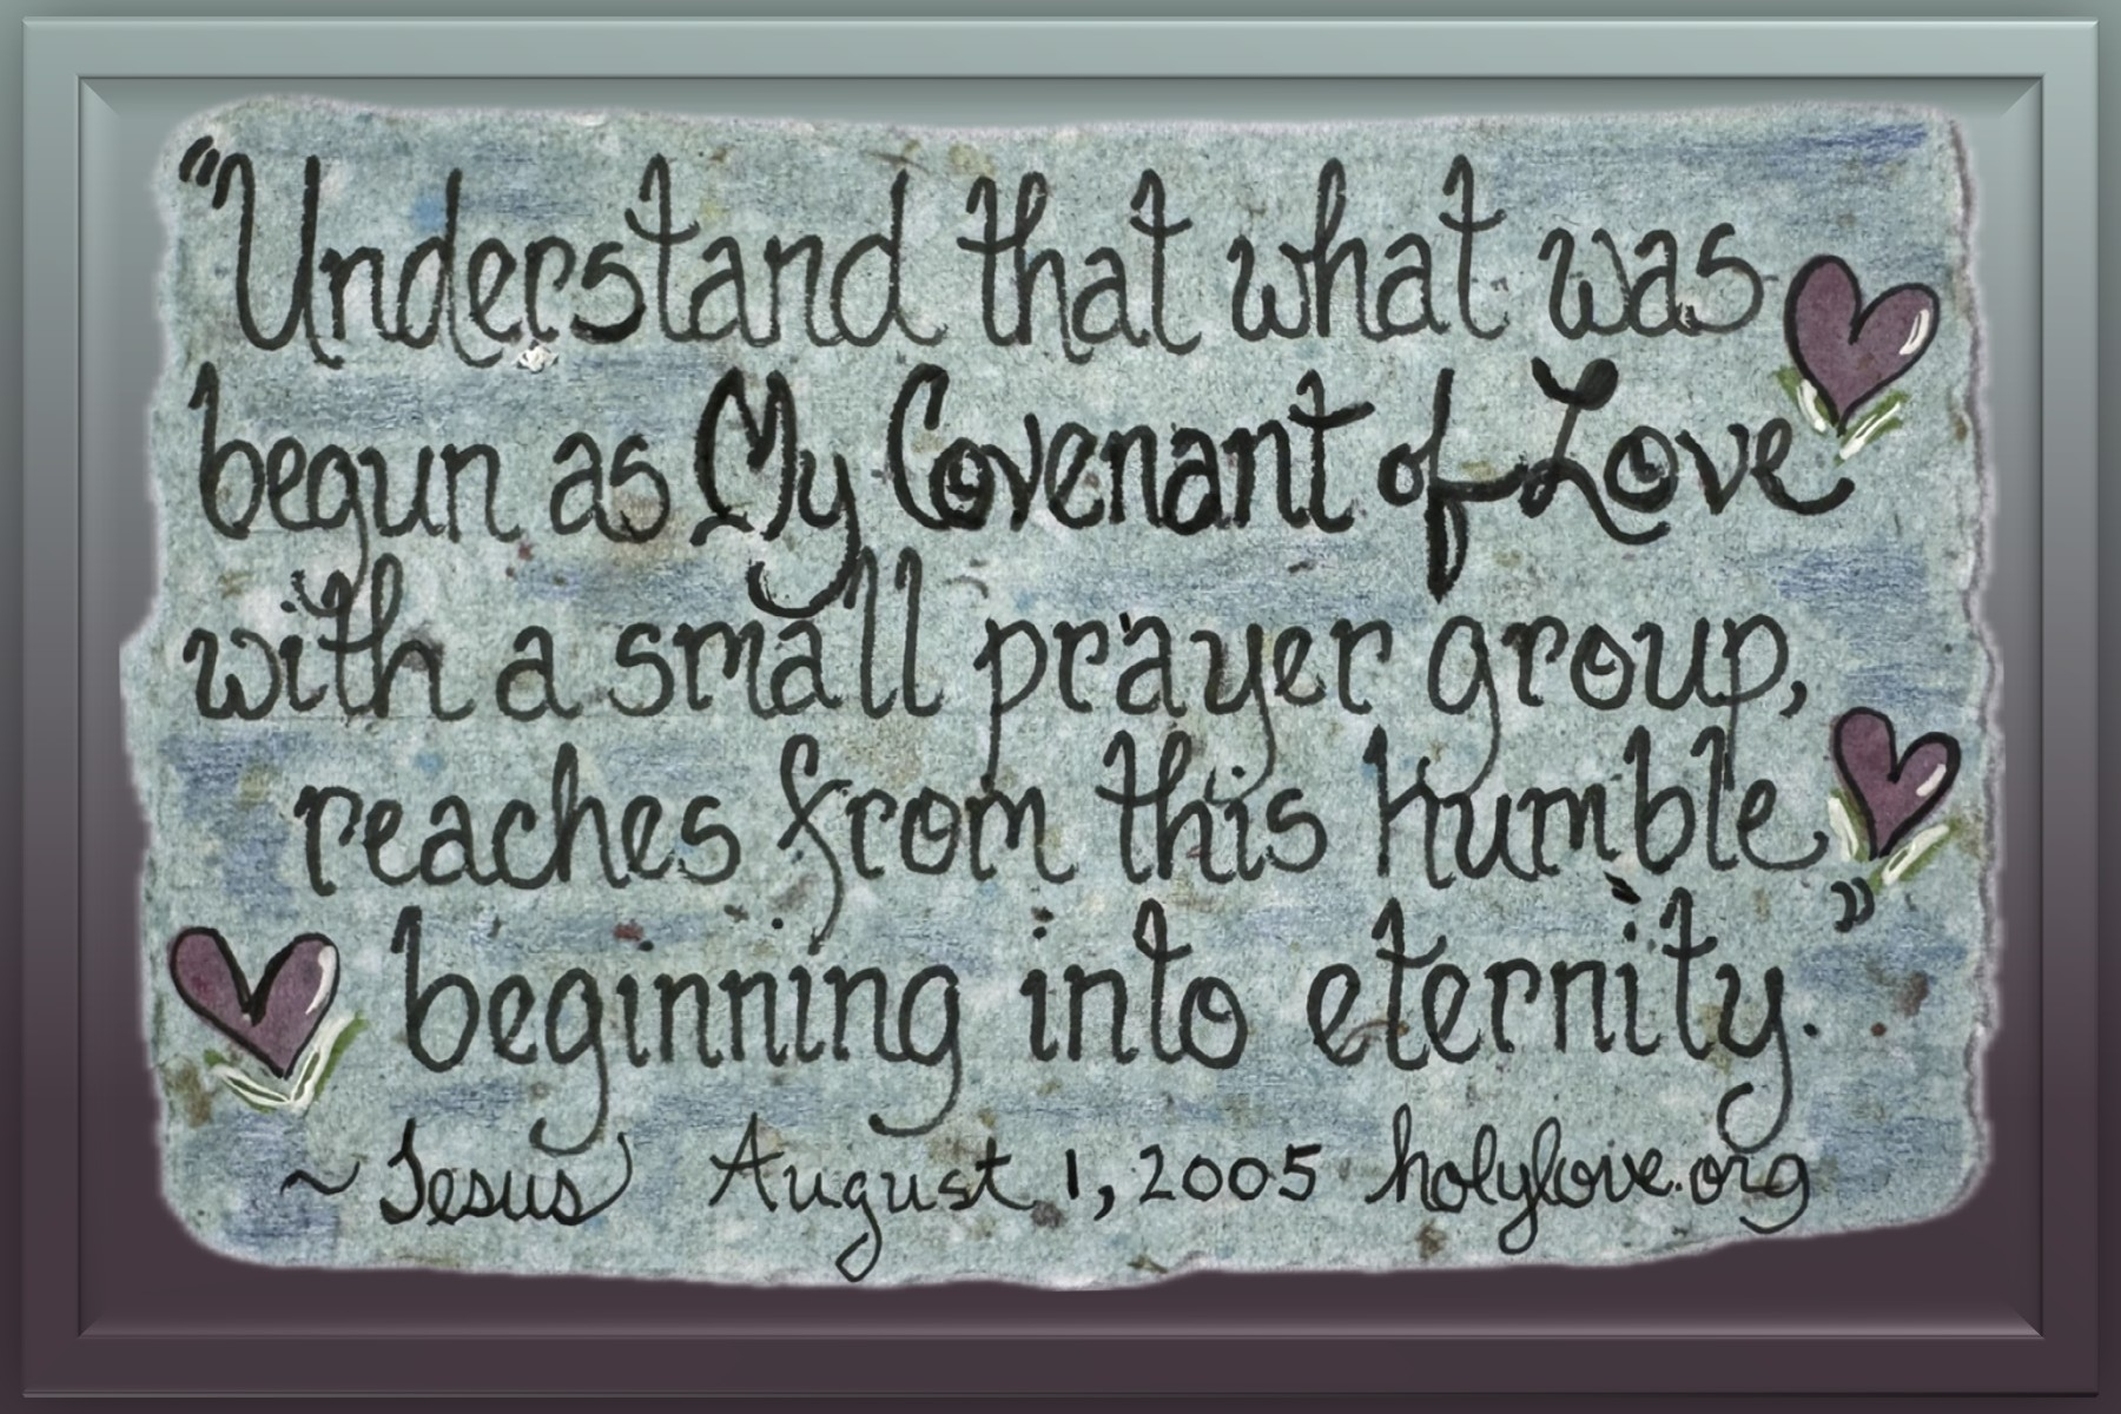 “Understand that what was
begun as My Covenant of Love
with a small prayer group,
reaches from this humble
beginning into eternity.”
~ Jesus August 1, 2005 holylove.org